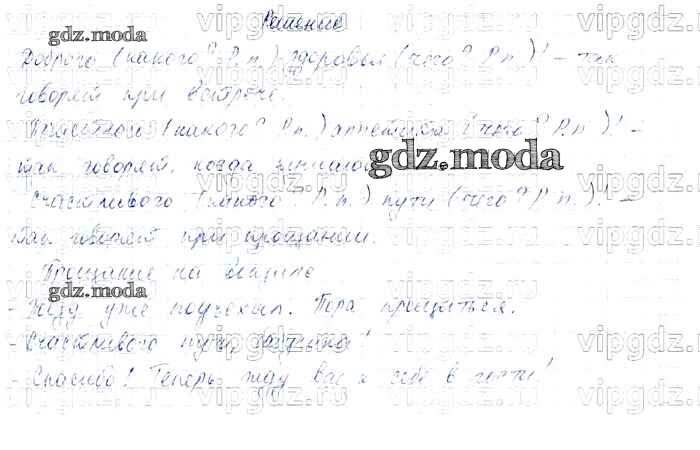 Решение
Доброго (какого? Р.п.) здоровья (чего? Р.п.)! – так
говорят при встрече.
Приятного (какого? Р.п.) аппетита (чего? Р.п.)! –
так говорят, когда
Счастливого (какого? Р.п.) пути (чего? Р.п.)! –
так говорят при прощании.
Прощание на
- уже поу. Пора прощаться.
- Счастливого пути,
- Спасибо! Теперь жду вас к себе в гости!
gdz.moda
gdz.moda
gdz.moda
vipgdz.ru